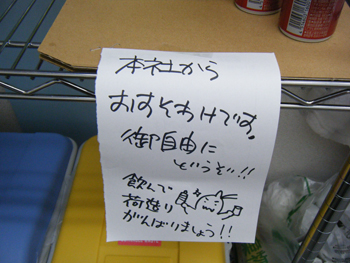 本社から
おすそわけです。
御自由に
どうぞ!!
飲んで
荷造り
がんばりましょう!!